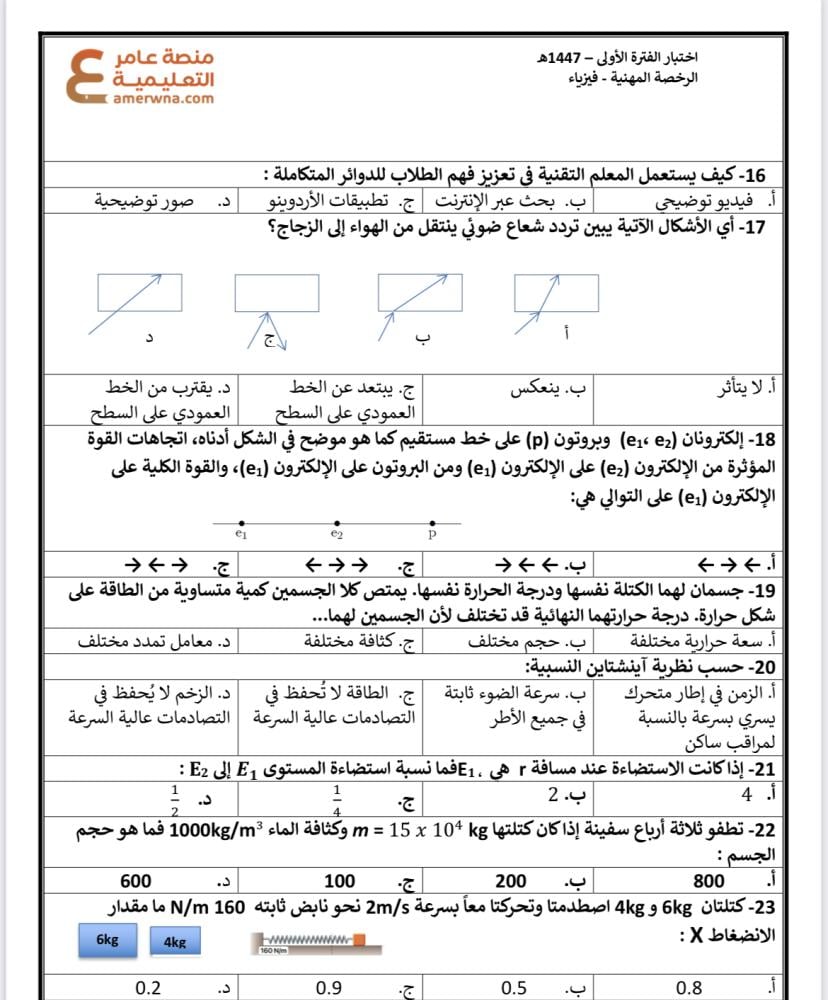 اختبار الفترة الأولى – 1447هـ
الرخصة المهنية - فيزياء
منصة عامر
التعليمية
amerwna.com
16- كيف يستعمل المعلم التقنية في تعزيز فهم الطلاب للدوائر المتكاملة :
أ. فيديو توضيحي ب. بحث عبر الإنترنت ج. تطبيقات الأردوينو د. صور توضيحية
17- أي الأشكال الآتية يبين تردد شعاع ضوئي ينتقل من الهواء إلى الزجاج؟
أ ب ج د
أ. لا يتأثر ب. ينعكس ج. يبتعد عن الخط د. يقترب من الخط
العمودي على السطح العمودي على السطح
18- إلكترونان (e₁، e₂) وبروتون (p) على خط مستقيم كما هو موضح في الشكل أدناه، اتجاهات القوة
المؤثرة من الإلكترون (e₂) على الإلكترون (e₁) ومن البروتون على الإلكترون (e₁)، والقوة الكلية على
الإلكترون (e₁) على التوالي هي:
e₁ e₂ p
أ. ← → ← ب. ← ← → ج. → → ← ج. → ← →
19- جسمان لهما الكتلة نفسها ودرجة الحرارة نفسها. يمتص كلا الجسمين كمية متساوية من الطاقة على
شكل حرارة. درجة حرارتهما النهائية قد تختلف لأن الجسمين لهما...
أ. سعة حرارية مختلفة ب. حجم مختلف ج. كثافة مختلفة د. معامل تمدد مختلف
20- حسب نظرية آينشتاين النسبية:
أ. الزمن في إطار متحرك ب. سرعة الضوء ثابتة ج. الطاقة لا تُحفظ في د. الزخم لا يُحفظ في
يسري بسرعة بالنسبة في جميع الأطر التصادمات عالية السرعة التصادمات عالية السرعة
لمراقب ساكن
21- إذا كانت الاستضاءة عند مسافة r هي E₁، فما نسبة استضاءة المستوى E₁ إلى E₂ :
أ. 4 ب. 2 ج. 1/4 د. 1/2
22- تطفو ثلاثة أرباع سفينة إذا كان كتلتها m = 15 x 10⁴ kg وكثافة الماء 1000kg/m³ فما هو حجم
الجسم :
أ. 800 ب. 200 ج. 100 د. 600
23- كتلتان 6kg و 4kg اصطدمتا وتحركتا معاً بسرعة 2m/s نحو نابض ثابته 160 N/m ما مقدار
الانضغاط X :
6kg 4kg 160 N/m
أ. 0.8 ب. 0.5 ج. 0.9 د. 0.2